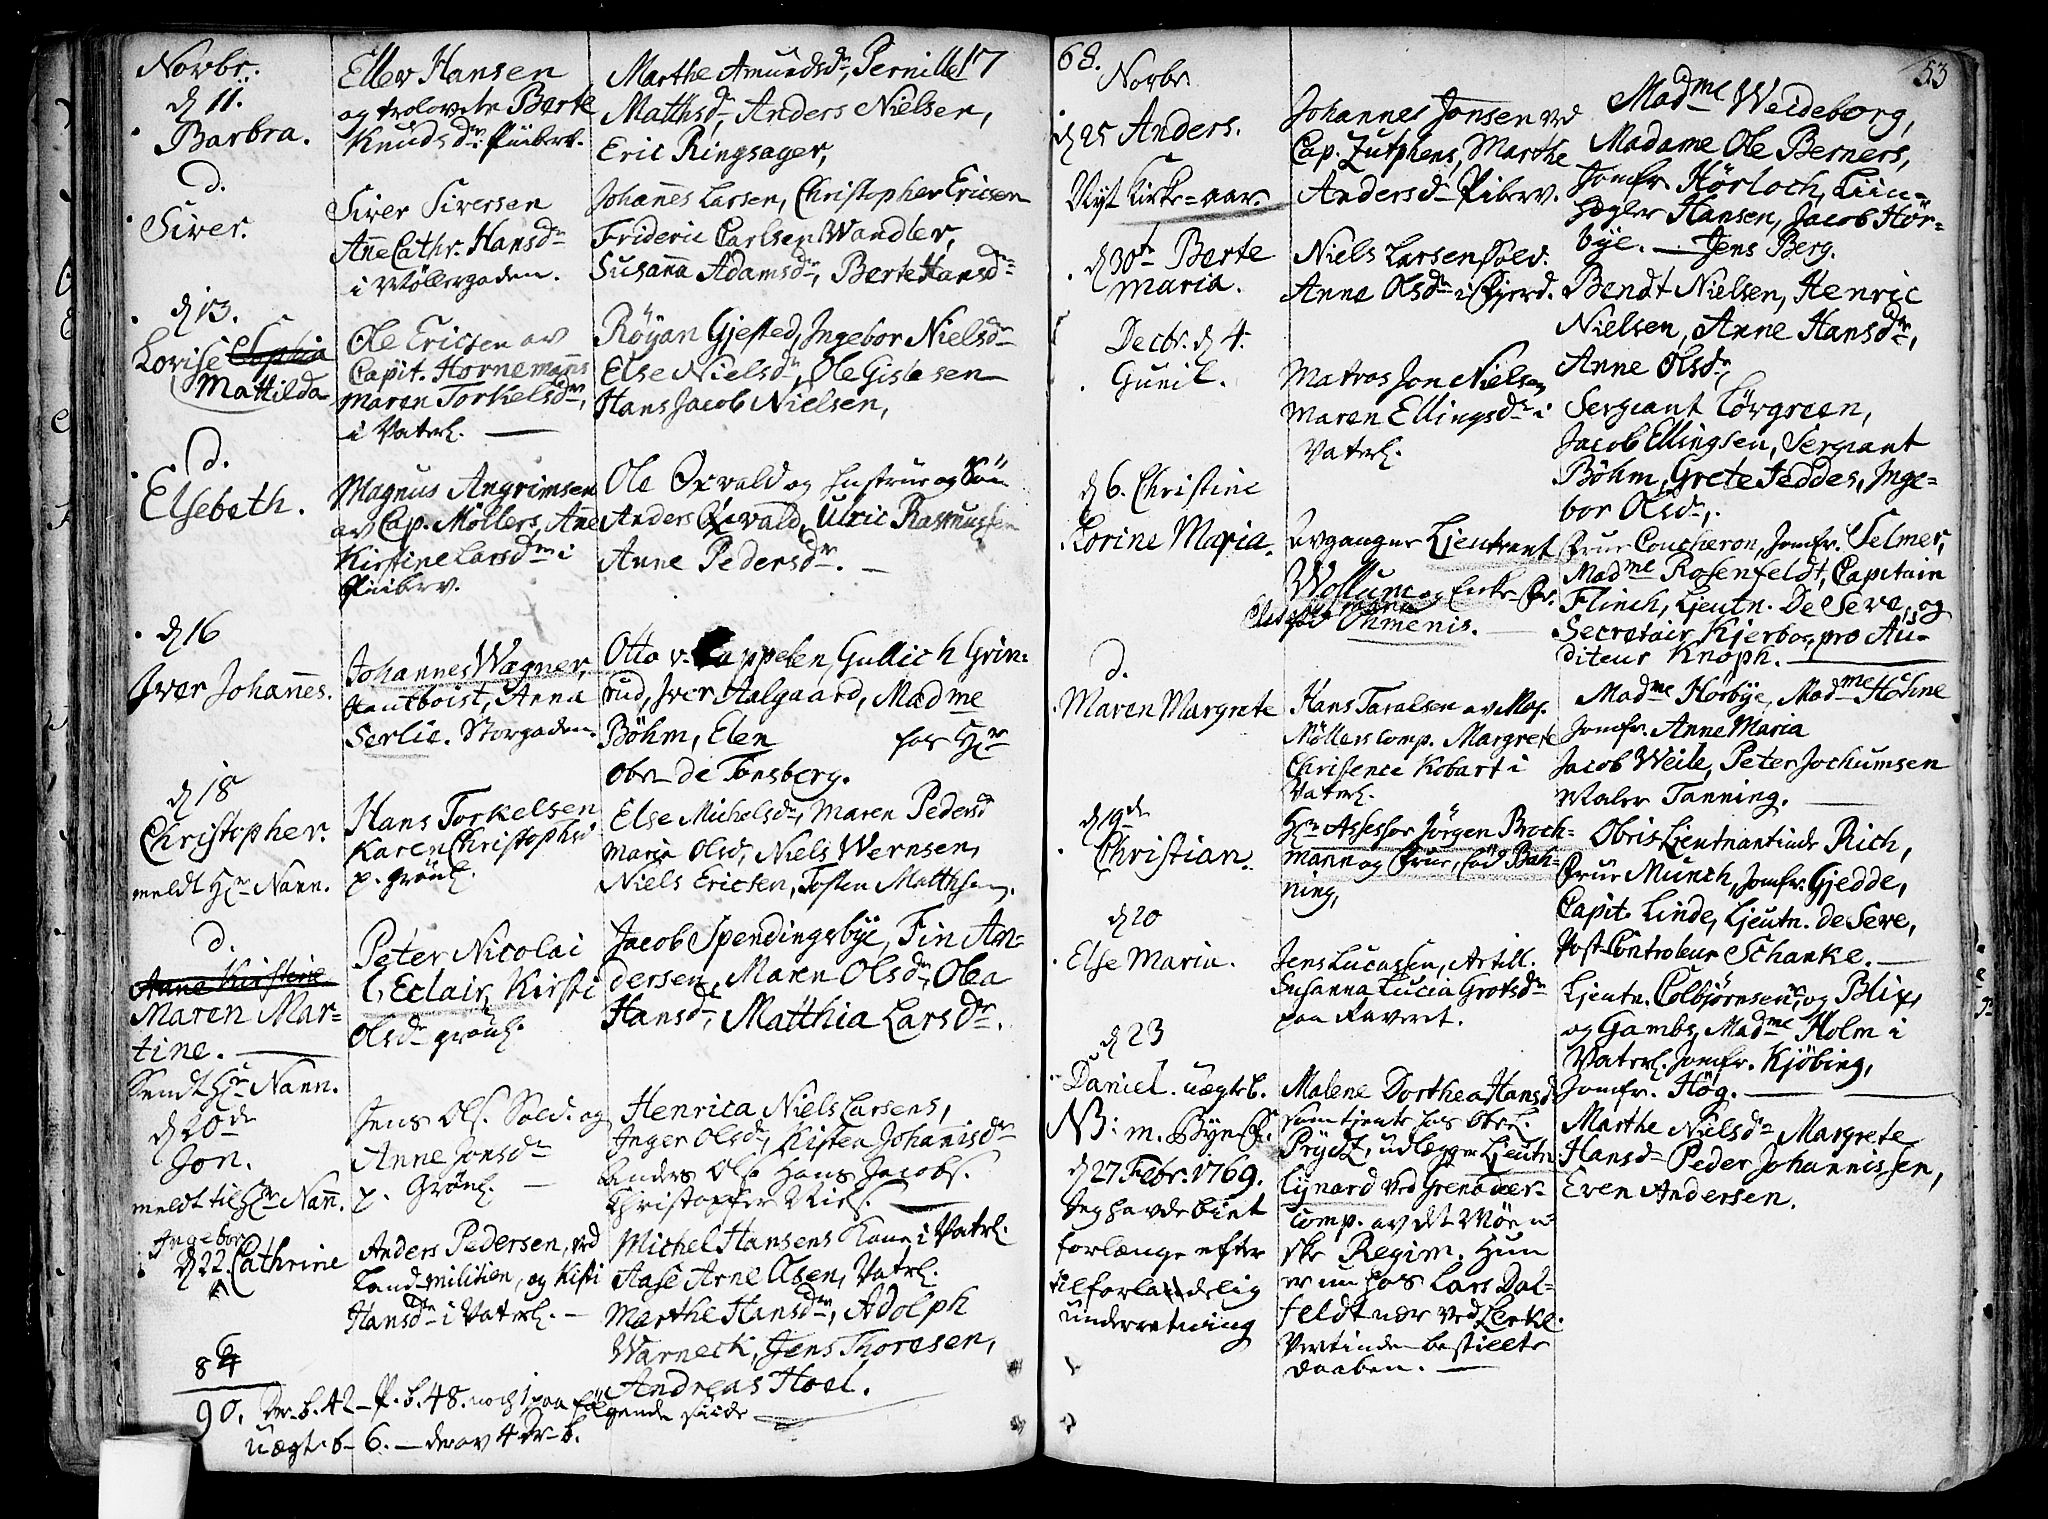 17
Norbr.
d 11.
Barbra.
Eller Hansen
og trolovete Berte
Knudsdr Piiberv.
Marthe Amundsdr, Pernille
Mathsdr, Anders Nielsen,
Eric Ringsager,
d.
Siver.
Siver Siversen
Anne Cathr. Hansdr
i Møllergaden.
Johanes Larsen, Christopher Ericsen
Frideric Carlsen Wandler,
Susanna Adamsdr, Berte Hansdr
d 13.
Lovise Sophia
Mattilda
Ole Ericsen av
Capit. Hornemanns
Maren Torkelsdr,
i Vaterl.
Røyan Gjested, Ingebor Nielsdr
Else Nielsdr, Ole Gislesen
Hans Jacob Nielsen,
d.
Elsebeth.
Magnus Angrimsen
av Cap. Möllers, Ane
Kirstine Larsdr i
Piiberv.
Ole Oxvald og hustrue og Søn
Anders Oxvald, Ulric Rasmussen
Anne Pedersdr.
d 16
Iver Johanes.
Johannes Wagner,
Hautboist, Anna
Serlie. Storgaden.
Otto v. Cappelen, Gullich Grin-
rud, Iver Aalgaard, Madme
Bøhm, Elen hos Hr
Obr de Tonsberg.
d 18
Christopher.
meldt Hr Nann.
Hans Torkelsen
Karen Christophri
p. grönl.
Else Michelsdr, Maren Pedersd
Marie Olsd, Niels Wernsen,
Niels Ericsen, Tosten Matthsen.
d.
Anne Kirstine
Maren Mar-
tine.
Sendt Hr Nann.
Peter Nicolai
l'Eclair, Kirsti
Olsdr grönl.
Jacob Spendingsbye, Fin An-
dersen, Maren Olsdr, Olea
Hansdr, Matthia Larsdr.
d 20de
Jon.
meldt til Hr Nann.
Jens Ols. Sold. og
Anne Jonsdr
p. Grönl.
Henrica Niels Larsens,
Inger Olsdr, Kisten Johanisdr
Anders Ols. Hans Jacobs.
Christoffer Niels.
Ingebor
d 22. Cathrine
Anders Pedersen, ved
Landmilitien, og Kisti
Hansdr i Vaterl.
Michel Hansens Kone i Vatrl.
Aase Arne Olsen, Vatrl.
Marthe Hansdr, Adolph
Warneck, Jens Thoresen,
Andreas Hoel.
84
90. Dr. b. 42 P. b. 48. noch 1 paa føl
gende side
uægt. b. 6. derav 4 Dr. b.
68.
53
Norbr.
d 25 Anders.
Nyt Kirke-aar.
Johannes Jonsen ved
Cap. Zutphens, Marthe
Andersdr Piberv.
Madme Weideborg,
Madame Ole Berners,
Jomfr. Hörloch, Liin-
Hansen, Jacob Hör-
bye. Jens Berg.
d 30te Berte
Maria.
Niels Larsen Sold.
Anne Olsdr i Fierd.
Bendt Nielsen, Henric
Nielsen, Anne Hansdr,
Anne Olsdr,
Decbr. d 4.
Gunil.
Matros Jon Nielsen
Maren Ellingsdr i
Vaterl.
Sergeant Lörgreen,
Jacob Ellingsen, Sergeant
Böhm, Grete Jeddes, Inge-
bor Olsdr,
d 6. Christine
Korine Maria.
avgangne Ljeutnant
Wollum og Enke Fr.
Ohmenis.
Frue Coucheron, Jomfr. Selmer,
Madme Rosenfeldt, Capitain
Flinch, Ljeutn. De Seve, og
Secretair Kjerbo, pro Au-
diteur Knoph.
d.
Maren Margrete
Hans Taralsen av Maj.
Møllers Comp. Margrete
Christence Kobart i
Vaterl.
Madme Hörbye, Madme Höhne
Jomfr. Anne Maria
Jacob Weile, Peter Jochumsen
Maler Tanning.
d 19de
Christian.
Hr Assessor Jörgen Broch-
mann og Frue, föd Bah-
ning,
Obrist Lieutnantinde Rich,
Frue Munch, Jomfr. Gjedde,
Capit. Linde, Ljeutn. de Seve,
Post-Controleur Schanke.
d 20
Else Maria.
Jens Lucassen, Artill.
Susanna Lucia Grotsdr
paa Raveret.
Ljeutn. Colbjörnsen, og Blix,
og Gambs, Madme Holm i
Vaterl. Jomfr. Kjöbing,
Jomfr. Hög.
d 23
Daniel. uægte b.
NB: m. Byns Fr.
d 27 Febr. 1769.
Jeg havde biet
forlænge efter
tilforladelig
underretning
Malene Dorthea Hansd
som tjente hos Oberl.
Prydz, udlægger Ljeutn
Lynard ved Grenadeer-
comp. av det Møen-
ske Regim. Hun
er nu hos Lars Dal-
feldt ude ved Leret.
Vertinden bestilte
daaben.
Marthe Nielsdr Margrete
Hansdr Peder Johannissen,
Even Andersen.